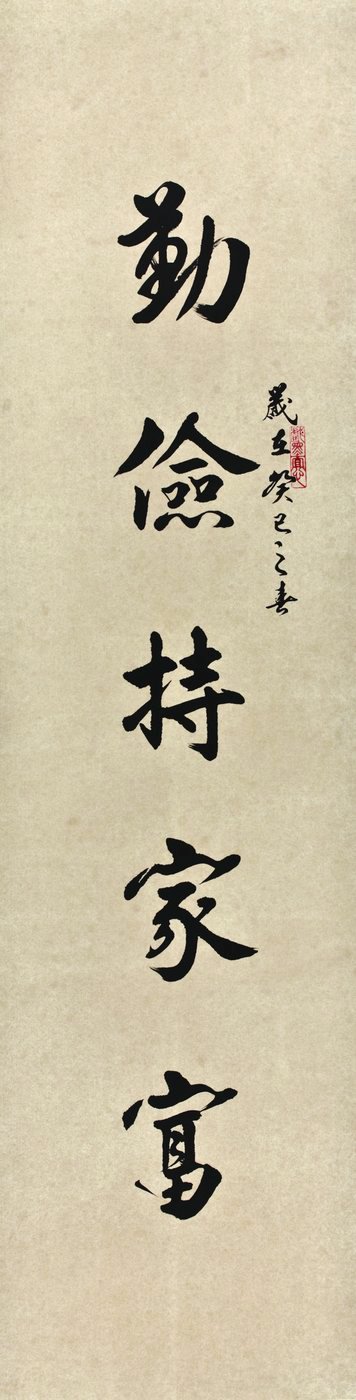 歲在癸巳之春
勤儉持家富